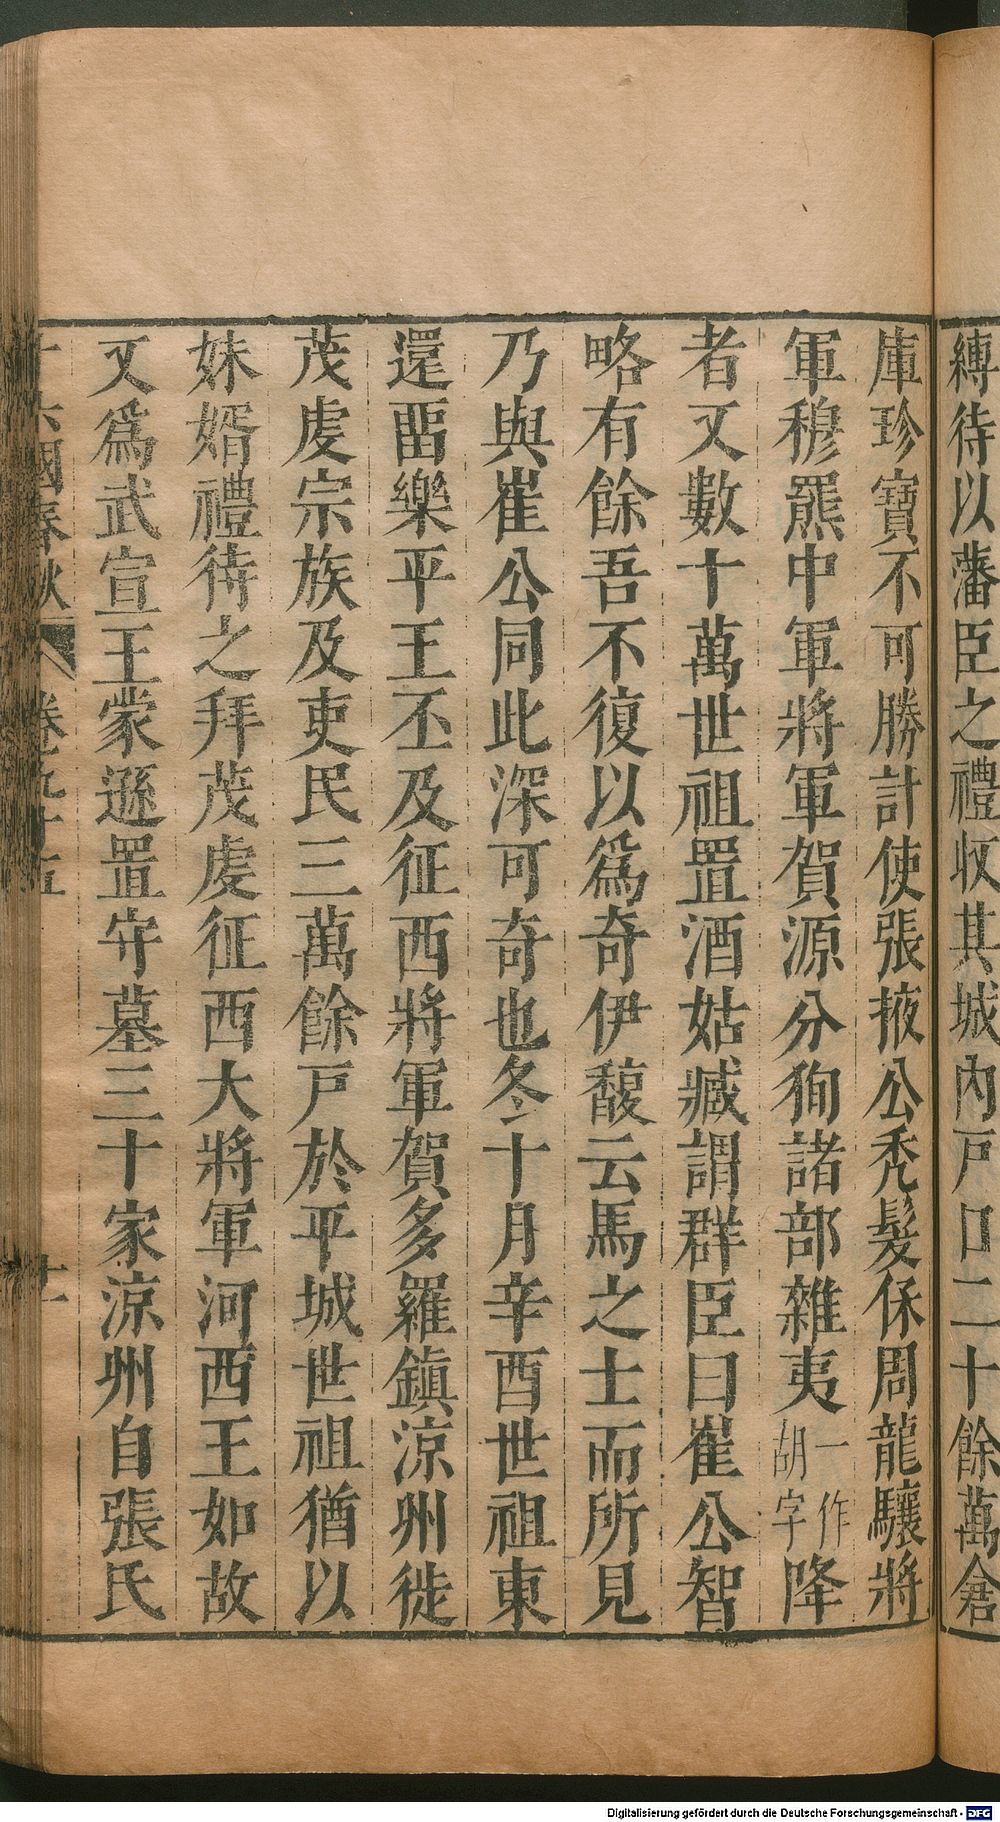 縛待以藩臣之禮收其城內戸口二十餘萬倉
庫珍寶不可勝計使張掖公禿髮保周龍驤將
軍穆羆中軍將軍賀源分狥諸部雜夷一作胡字降
者又數十萬世祖置酒姑臧謂群臣曰崔公智
略有餘吾不復以爲奇伊馥云馬之士而所見
乃與崔公同此深可奇也冬十月辛酉世祖東
還畱樂平王丕及征西將軍賀多羅鎮涼州徙
茂虔宗族及吏民三萬餘戸於平城世祖猶以
妹婿禮待之拜茂虔征西大將軍河西王如故
又爲武宣王蒙遜置守墓三十家涼州自張氏
十六國春秋 卷九十五 十一
Digitalisierung gefördert durch die Deutsche Forschungsgemeinschaft - DFG